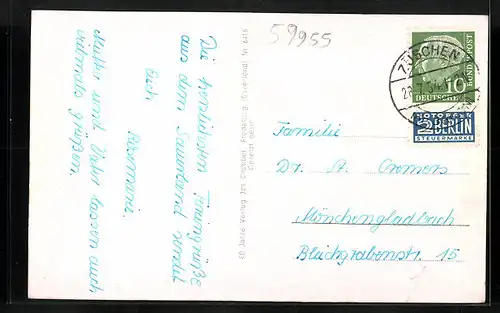 59955
ZÜSCHEN
10
BUNDESPOST
DEUTSCHE
NOTOPFER
2 BERLIN
STEUERMARKE
Familie
Dr. A. Cremers
Mönchengladbach
Bleichgrabenstr. 15
60 Jahre Verlag Jos. Grobbel, Fredeburg (Sauerland) Nr. 6416
Die herzlichsten Feriengrüße
aus dem Sauerland sendet
Euch
Rosemarie.
Mutter und Vater lassen auch
vielmals grüßen.